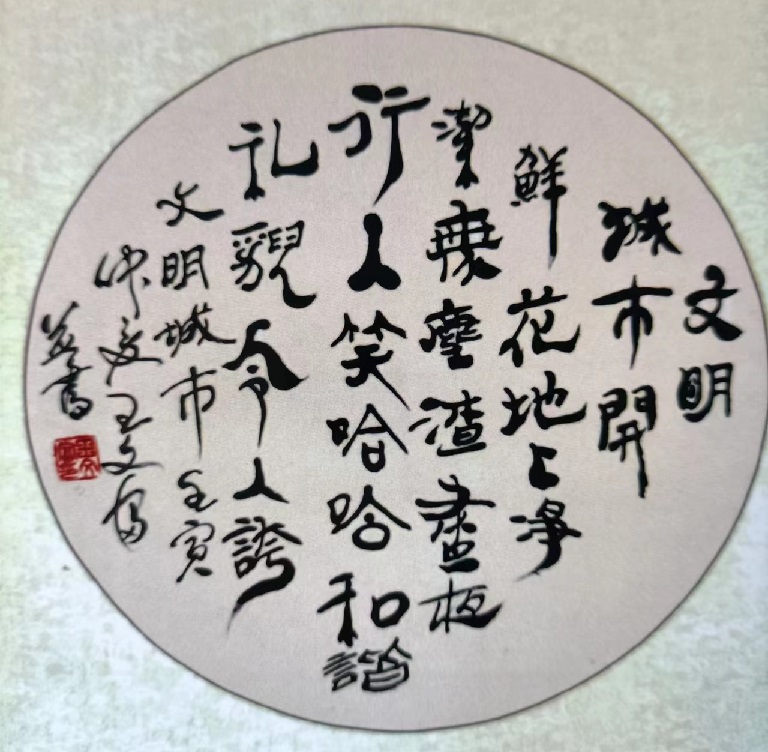 文明
城市開
鮮花地上淨
潔無塵渣盡
行人笑哈哈和諧
礼貌令人誇
文明城市壬寅
仲夏王文
書